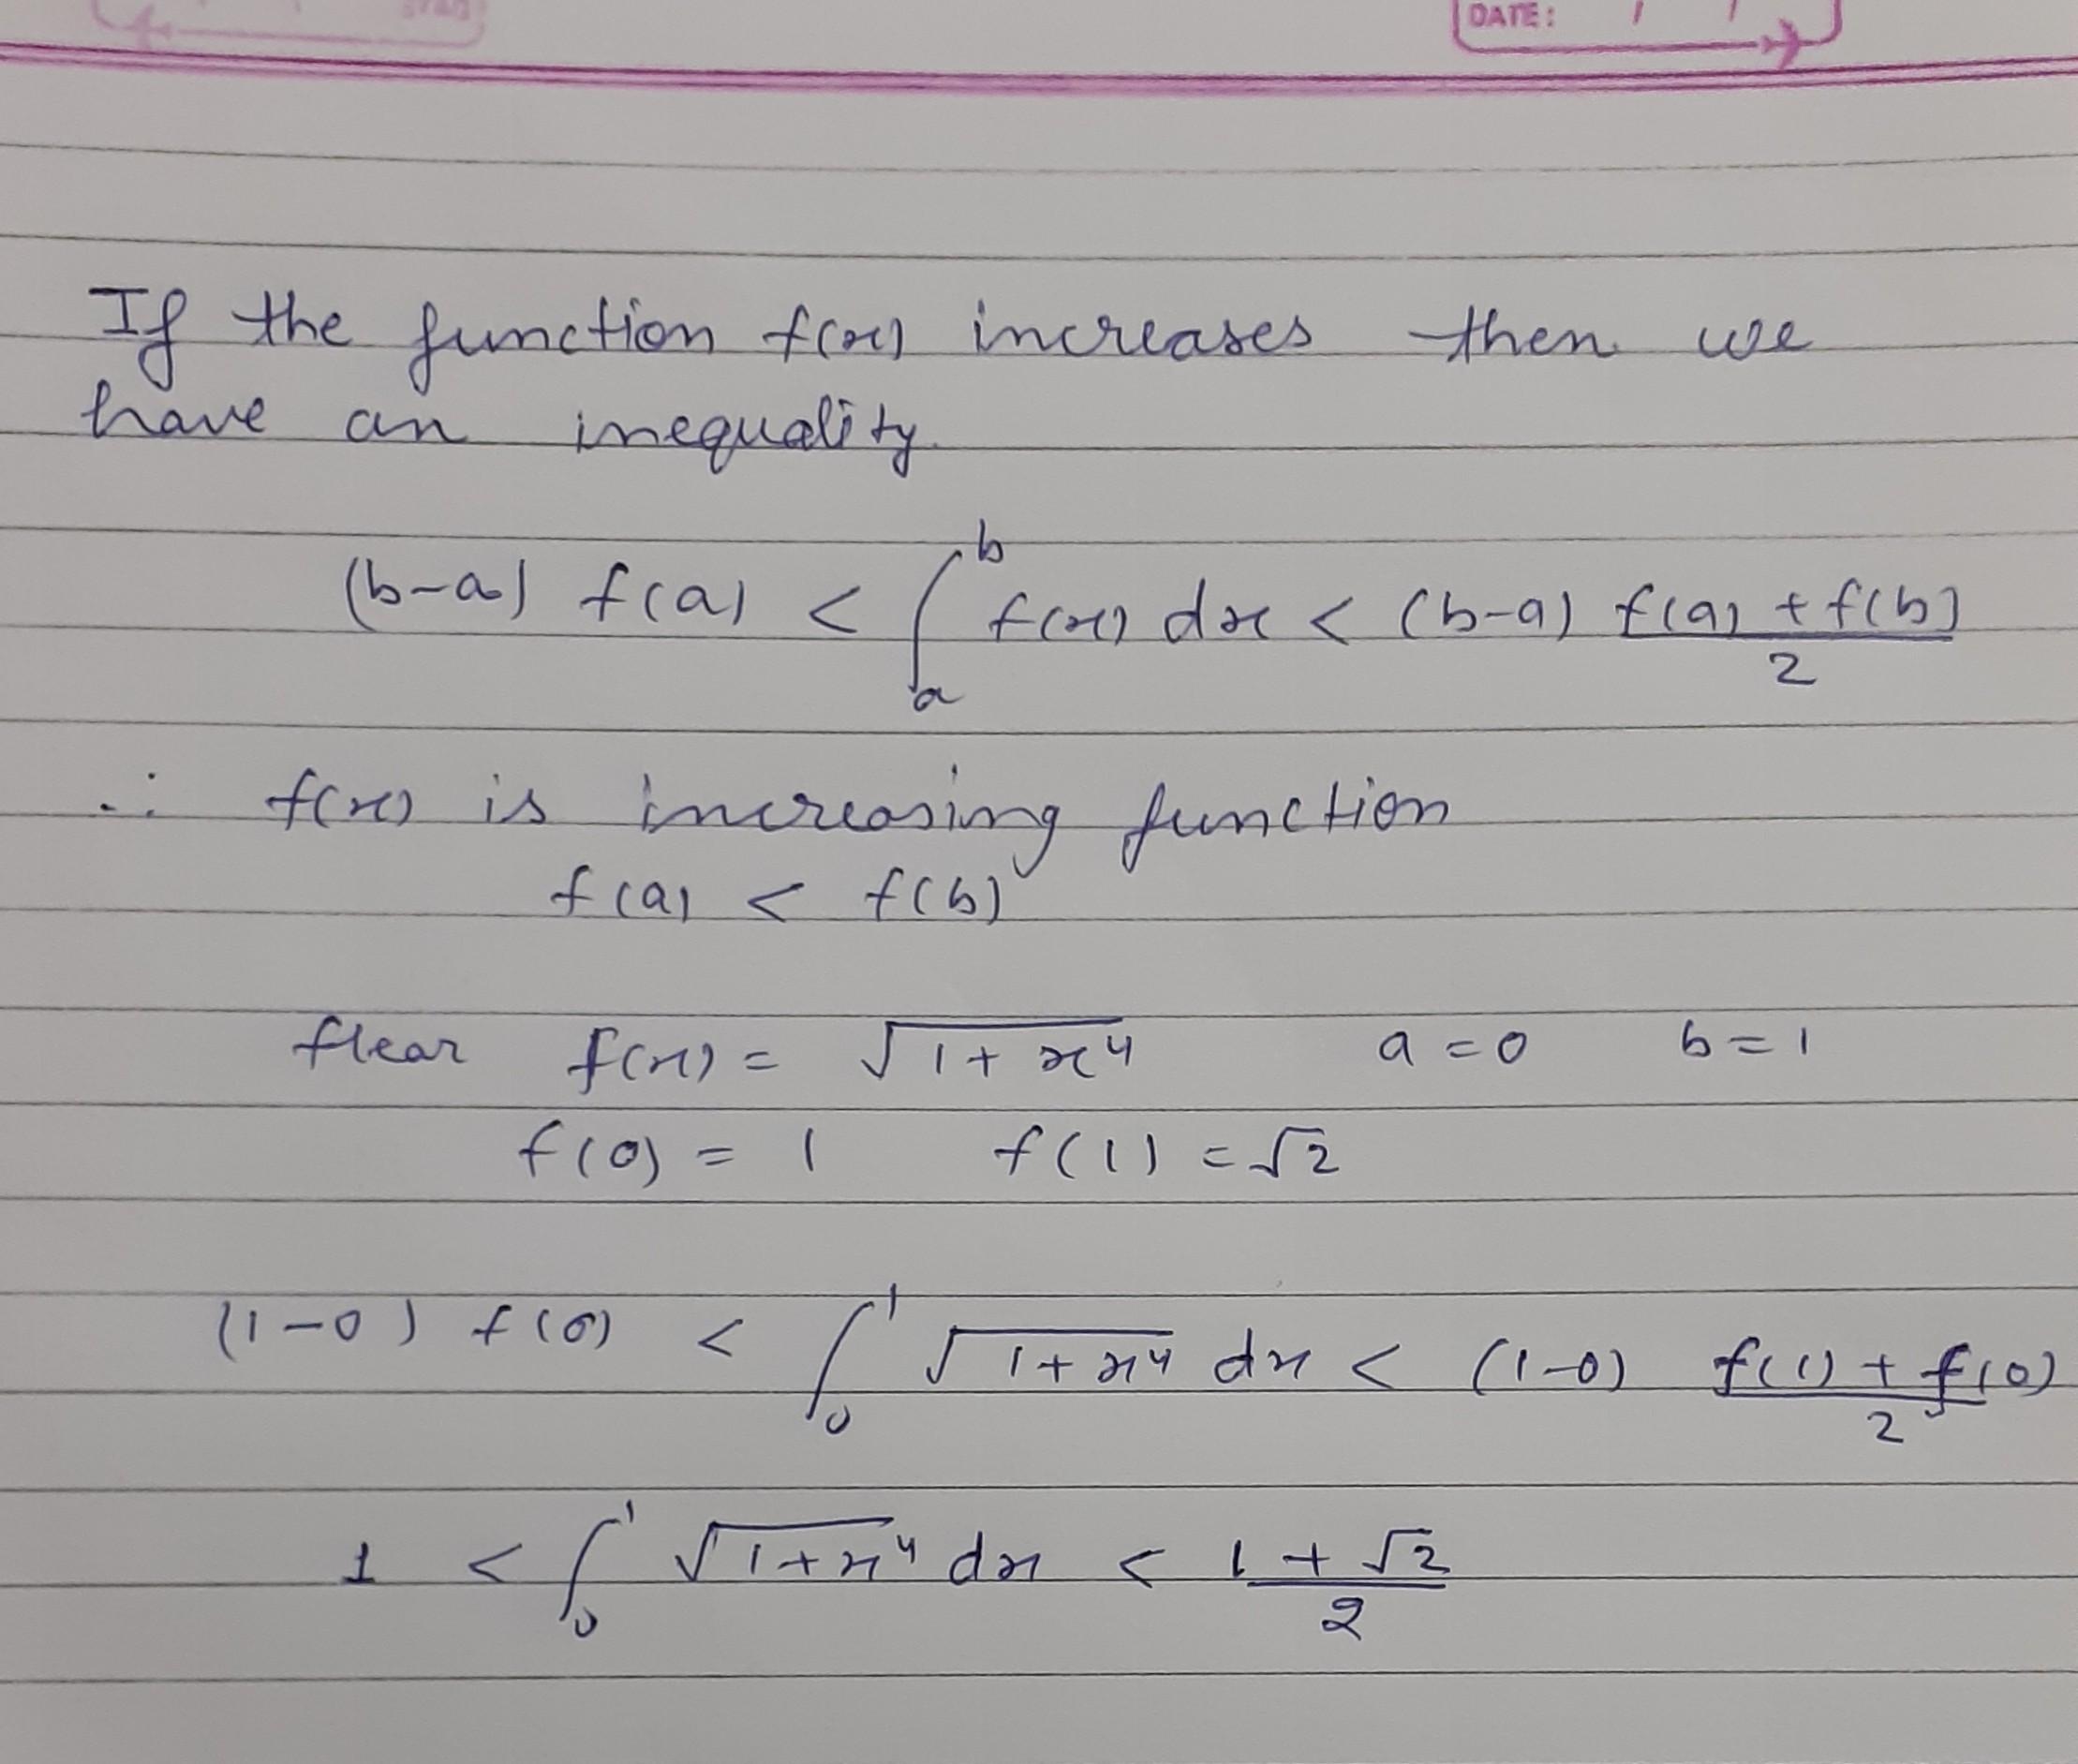 DATE: / /
If the function f(x) increases then we
have an inequality.
(b-a) f(a) < ∫_a^b f(x) dx < (b-a) (f(a) + f(b))/2
∴ f(x) is increasing function
f(a) < f(b)
f(x) = √(1 + x⁴) a = 0 b = 1
f(0) = 1 f(1) = √2
(1-0) f(0) < ∫_0^1 √(1+x⁴) dx < (1-0) (f(1) + f(0))/2
1 < ∫_0^1 √(1+x⁴) dx < (1 + √2)/2